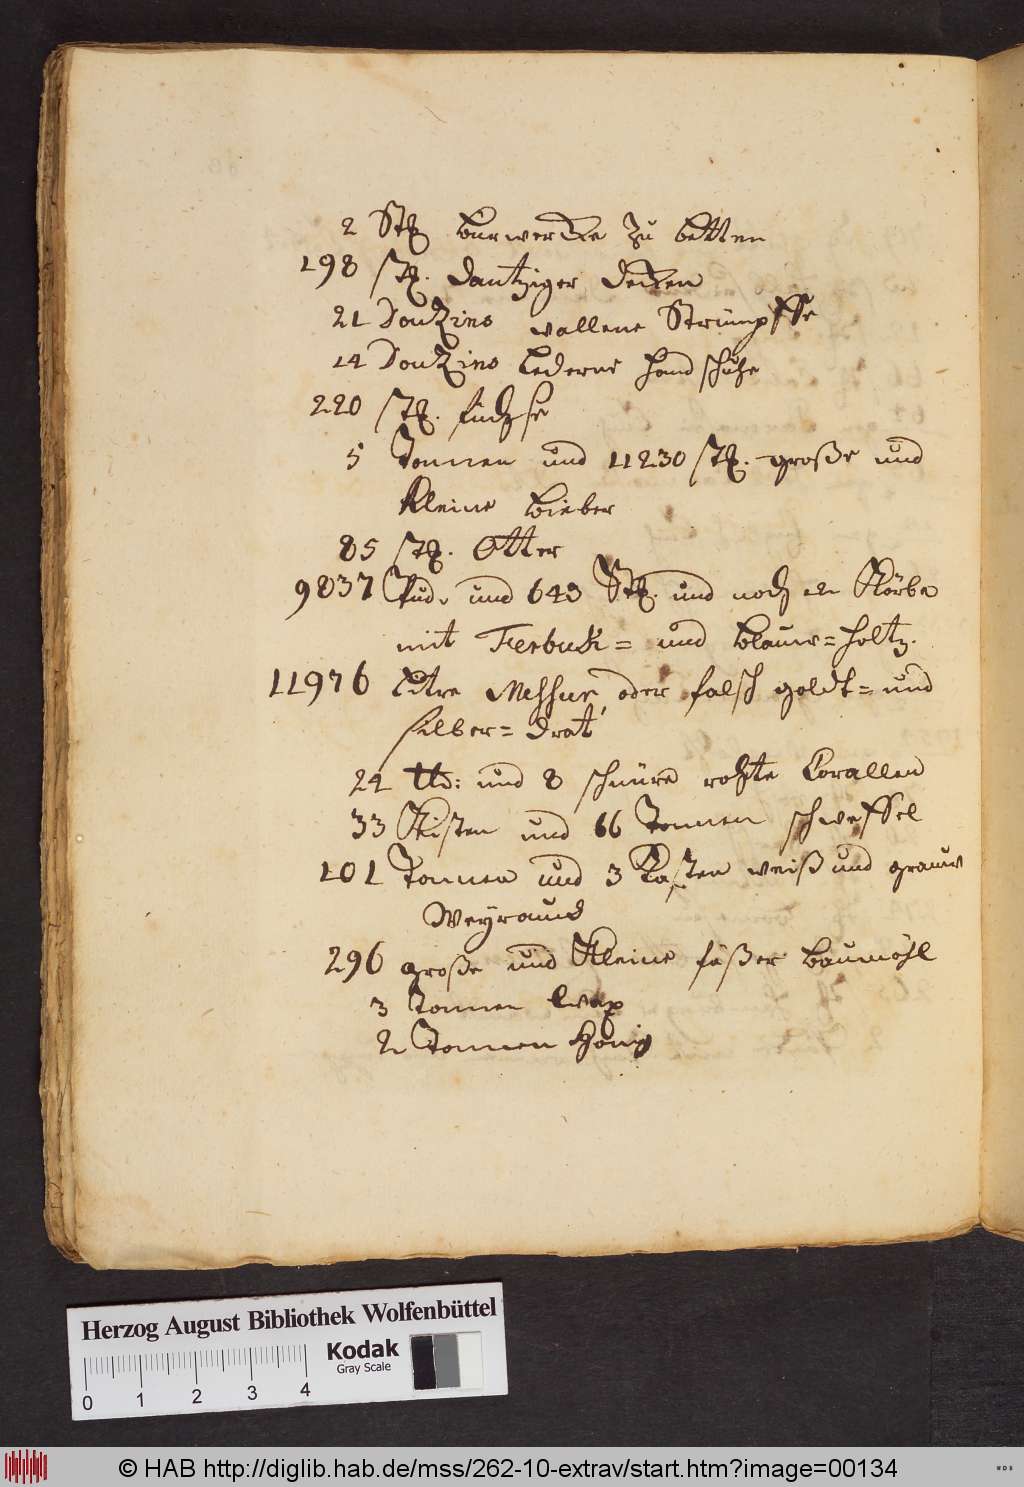 2 Stk burwerke zu betten
198 stk. dantziger decken
21 Doutzins wollene Strümpffe
14 Doutzins lederne handschuhe
220 stk. füchse
5 Tonnen und 11230 stk. große und
kleine bieber
85 stk. Otter
9837 Pud. und 643 Stk. und noch 22 Körbe
mit Ferbuk= und blauw=holtz.
11976 litre Messur, oder falsch goldt= und
silber= drat
24 tt: und 8 schnüre rohte Corallen
33 Kisten und 66 Tonnen schweffel
101 Tonnen und 3 Kasten weiß und grauw
Weyrauch
296 große und Kleine fäßer baumöhl
3 Tonnen
2 Tonnen Honig
Herzog August Bibliothek Wolfenbüttel
Kodak
Gray Scale
0 1 2 3 4
© HAB http://diglib.hab.de/mss/262-10-extrav/start.htm?image=00134